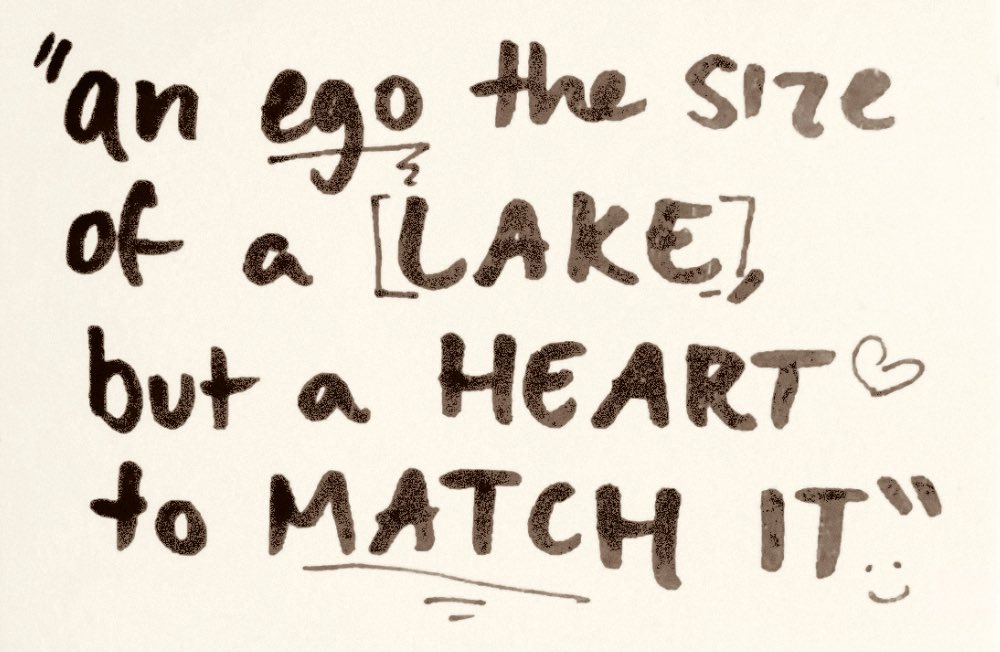 "an ego the size
of a [LAKE],
but a HEART
to MATCH IT"